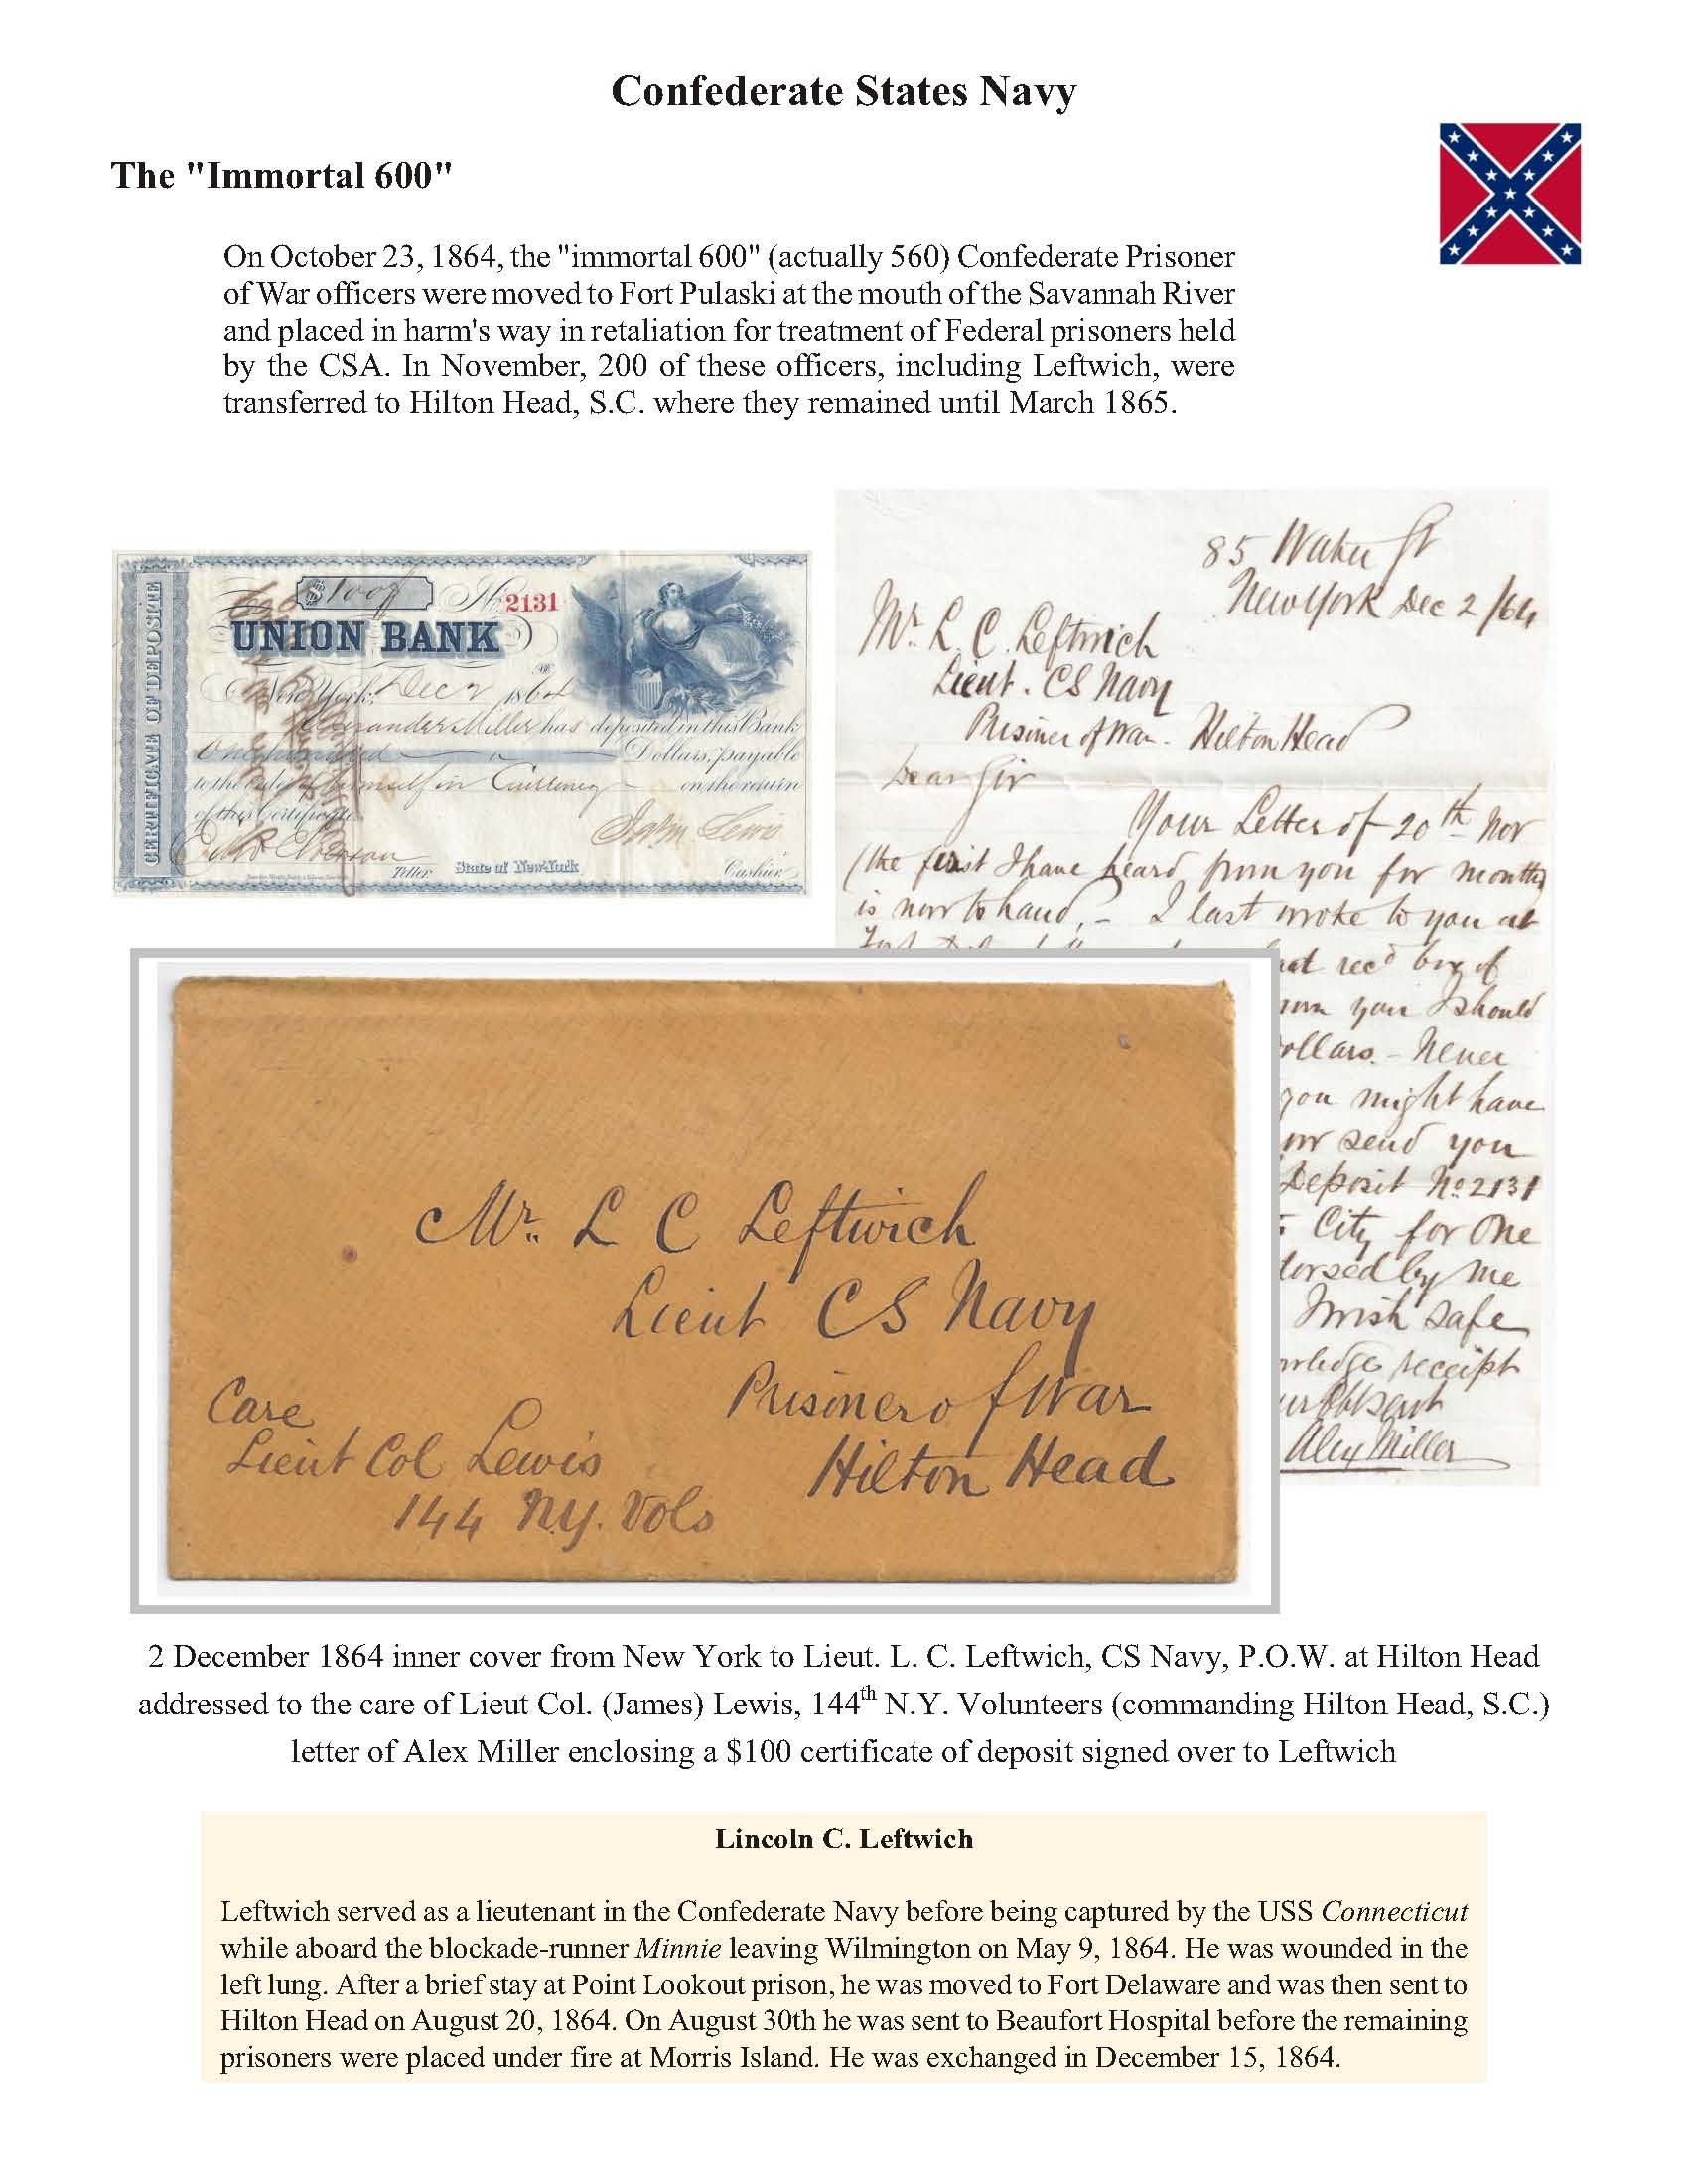 Confederate States Navy
The "Immortal 600"
On October 23, 1864, the "immortal 600" (actually 560) Confederate Prisoner
of War officers were moved to Fort Pulaski at the mouth of the Savannah River
and placed in harm's way in retaliation for treatment of Federal prisoners held
by the CSA. In November, 200 of these officers, including Leftwich, were
transferred to Hilton Head, S.C. where they remained until March 1865.
CERTIFICATE OF DEPOSITE
$100 No 2131
UNION BANK
New York, Dec 2 1864
Alexander Miller has deposited in this Bank
One hundred Dollars, payable
to the order of himself in Currency on the return
of this Certificate
Teller. State of New-York Cashier.
85 Water St
New York Dec 2/64
Mr. L. C. Leftwich
Lieut. CS Navy
Prisoner of War. Hilton Head
Dear Sir
Your Letter of 20th Nov
(the first I have heard from you for months
is now to hand, - I last wrote to you at
rec'd box of
you I should
Dollars. - Never
you might have
send you
Deposit No 2131
City for One
by me
safe
receipt
Alex Miller
Mr. L C Leftwich
Lieut CS Navy
Prisoner of War
Hilton Head
Care
Lieut Col Lewis
144 N.Y. Vols
2 December 1864 inner cover from New York to Lieut. L. C. Leftwich, CS Navy, P.O.W. at Hilton Head
addressed to the care of Lieut Col. (James) Lewis, 144th N.Y. Volunteers (commanding Hilton Head, S.C.)
letter of Alex Miller enclosing a $100 certificate of deposit signed over to Leftwich
Lincoln C. Leftwich
Leftwich served as a lieutenant in the Confederate Navy before being captured by the USS Connecticut
while aboard the blockade-runner Minnie leaving Wilmington on May 9, 1864. He was wounded in the
left lung. After a brief stay at Point Lookout prison, he was moved to Fort Delaware and was then sent to
Hilton Head on August 20, 1864. On August 30th he was sent to Beaufort Hospital before the remaining
prisoners were placed under fire at Morris Island. He was exchanged in December 15, 1864.